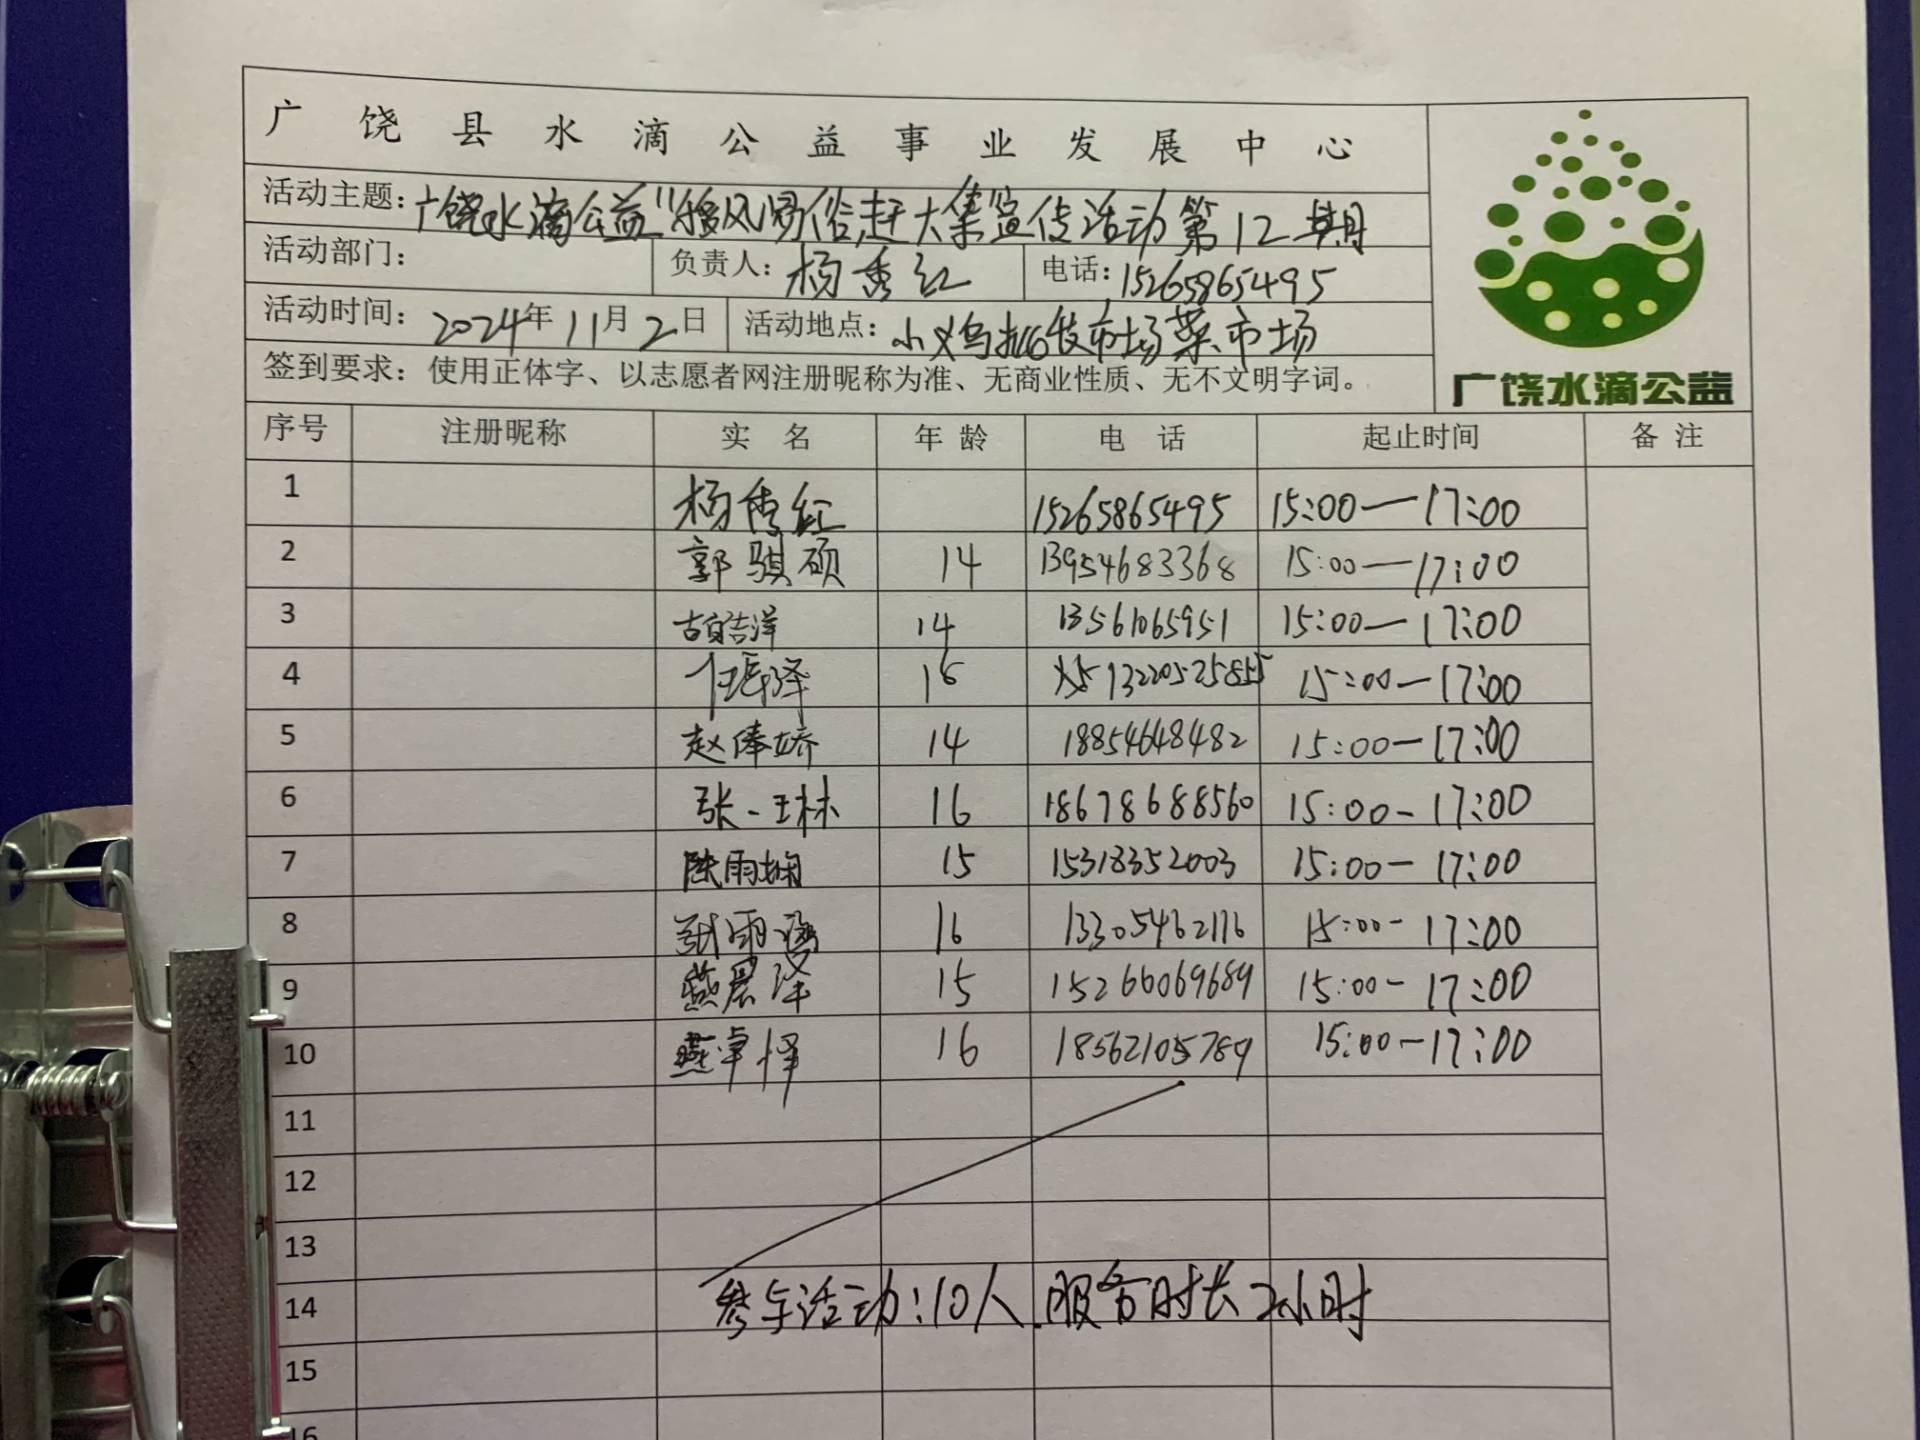 广饶县水滴公益事业发展中心
活动主题：广饶水滴公益"移风易俗,赶大集"宣传活动第12期
活动部门： 负责人：杨秀红 电话：15265865495
活动时间：2024年11月2日 活动地点：小义乌批发市场菜市场
签到要求：使用正体字、以志愿者网注册昵称为准、无商业性质、无不文明字词。
广饶水滴公益
序号 注册昵称 实名 年龄 电话 起止时间 备注
1 杨秀红 15265865495 15:00—17:00
2 郭骐硕 14 13954683368 15:00—17:00
3 14 13561065951 15:00—17:00
4 16 13220525855 15:00—17:00
5 赵俸娇 14 18854648482 15:00—17:00
6 张一林 16 18678688560 15:00-17:00
7 陈雨娴 15 15318352003 15:00—17:00
8 张雨涵 16 13305462116 15:00-17:00
9 燕晨泽 15 15266069689 15:00-17:00
10 燕卓怿 16 18562105789 15:00-17:00
11
12
13
14 参与活动:10人.服务时长2小时
15
16